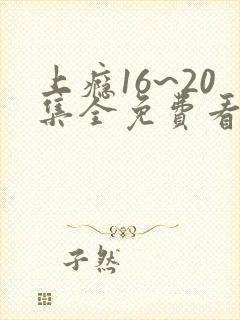 上瘾16~20
集全免費看
子然